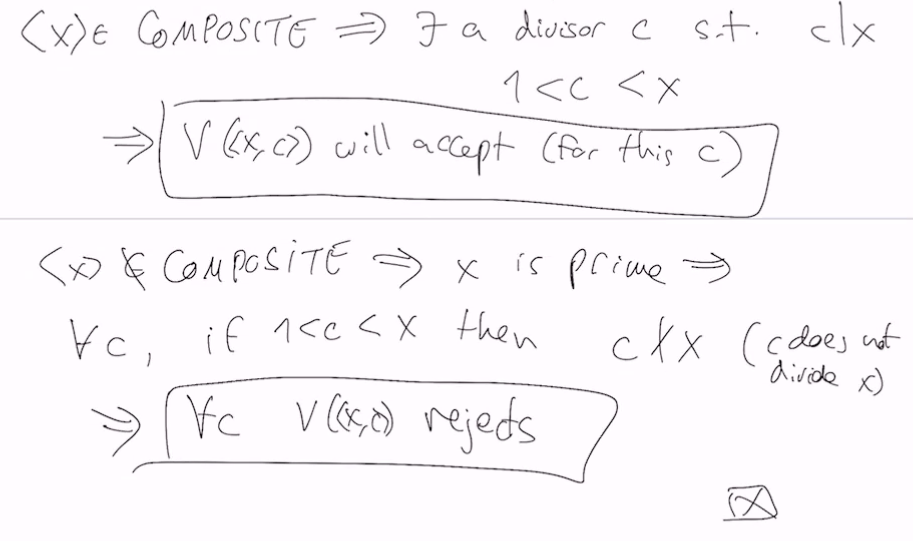 ⟨x⟩ ∈ COMPOSITE ⇒ ∃ a divisor c s.t. c|x
1 < c < x
⇒ V(⟨x,c⟩) will accept (for this c)
⟨x⟩ ∉ COMPOSITE ⇒ x is prime ⇒
∀c, if 1<c<x then c∤x (c does not
divide x)
⇒ ∀c V(⟨x,c⟩) rejects